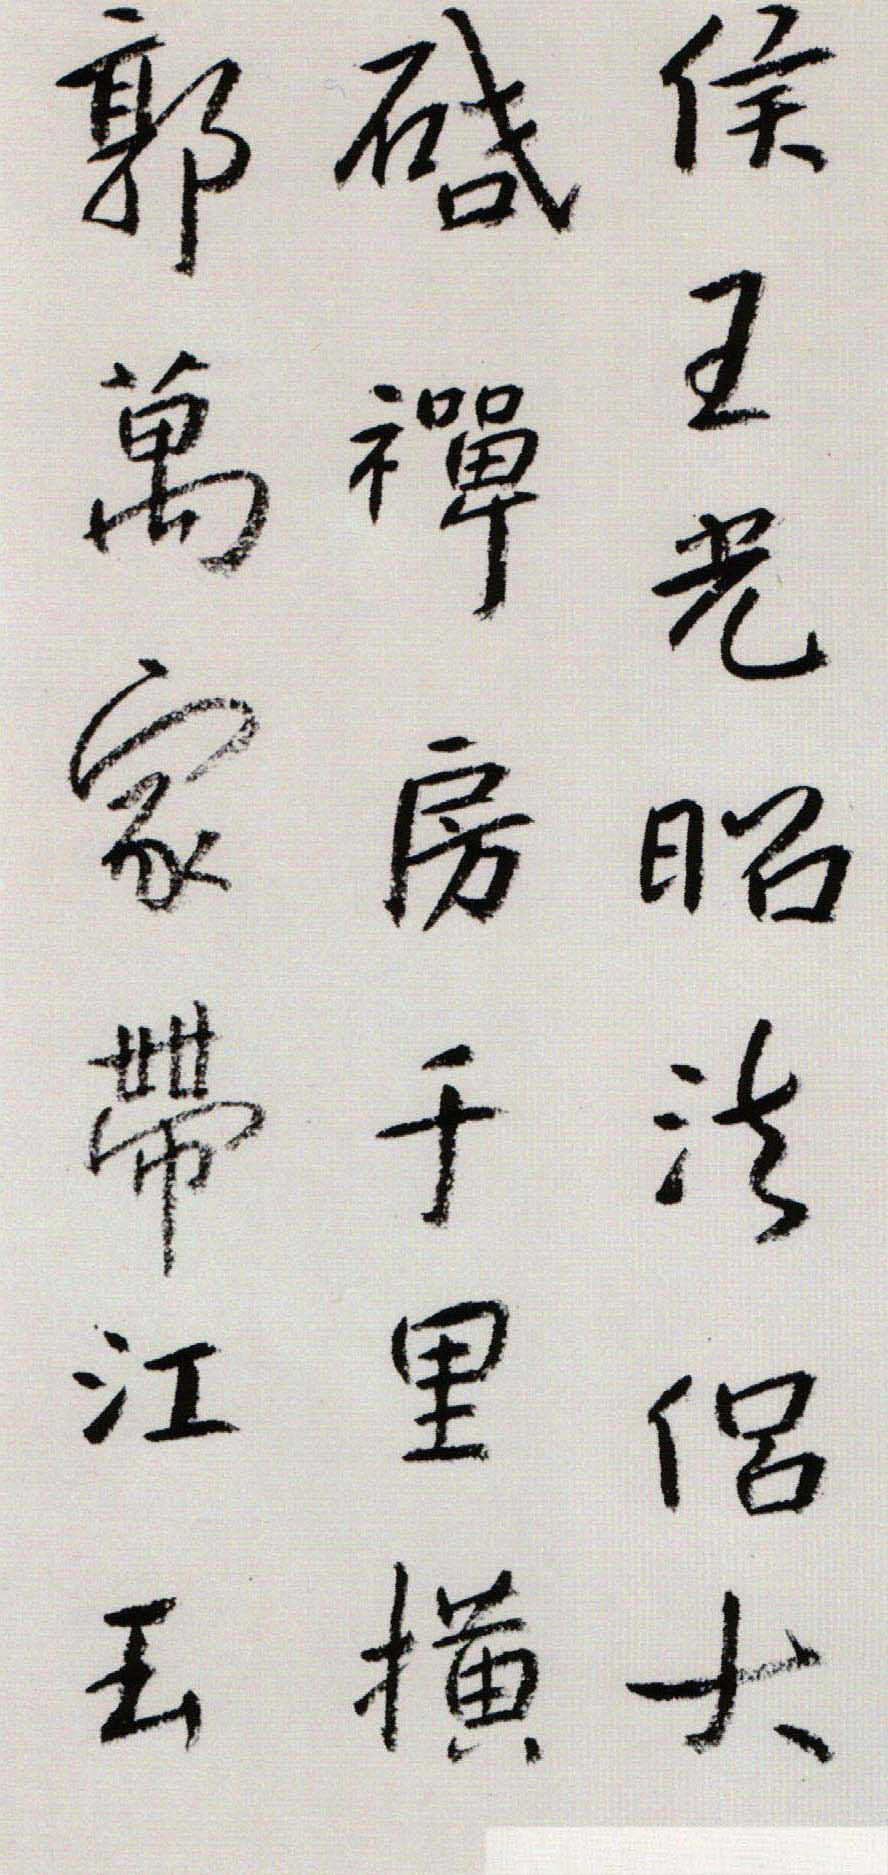 侯王光昭法侶大
啟禪房千里橫
郭萬家帶江玉